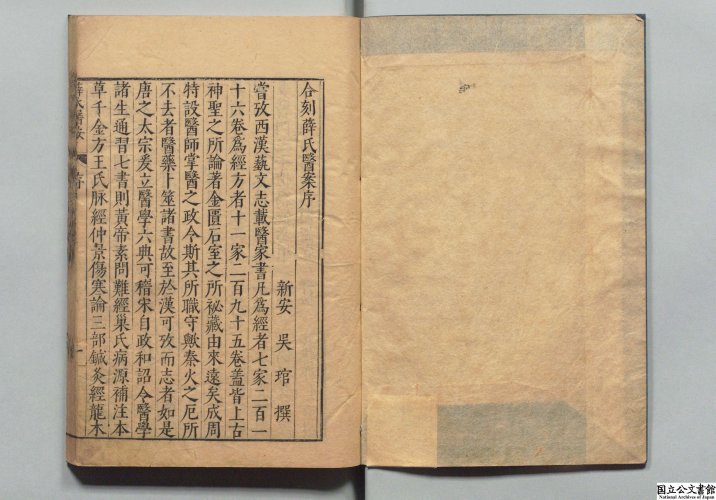 合刻薛氏醫案序
新安 吳琯 撰
嘗攷西漢藝文志載醫家書凡爲經者七家二百一
十六卷爲經方者十一家二百九十五卷蓋皆上古
神聖之所論著金匱石室之所祕藏由來遠矣成周
特設醫師掌醫之政令斯其所職守歟秦火之厄所
不去者醫藥卜筮諸書故至於漢可攷而志者如是
唐之太宗爰立醫學六典可稽宋自政和詔令醫學
諸生通習七書則黃帝素問難經巢氏病源補注本
草千金方王氏脉經仲景傷寒論三部鍼灸經龍木
薛氏醫案
序
国立公文書館
National Archives of Japan